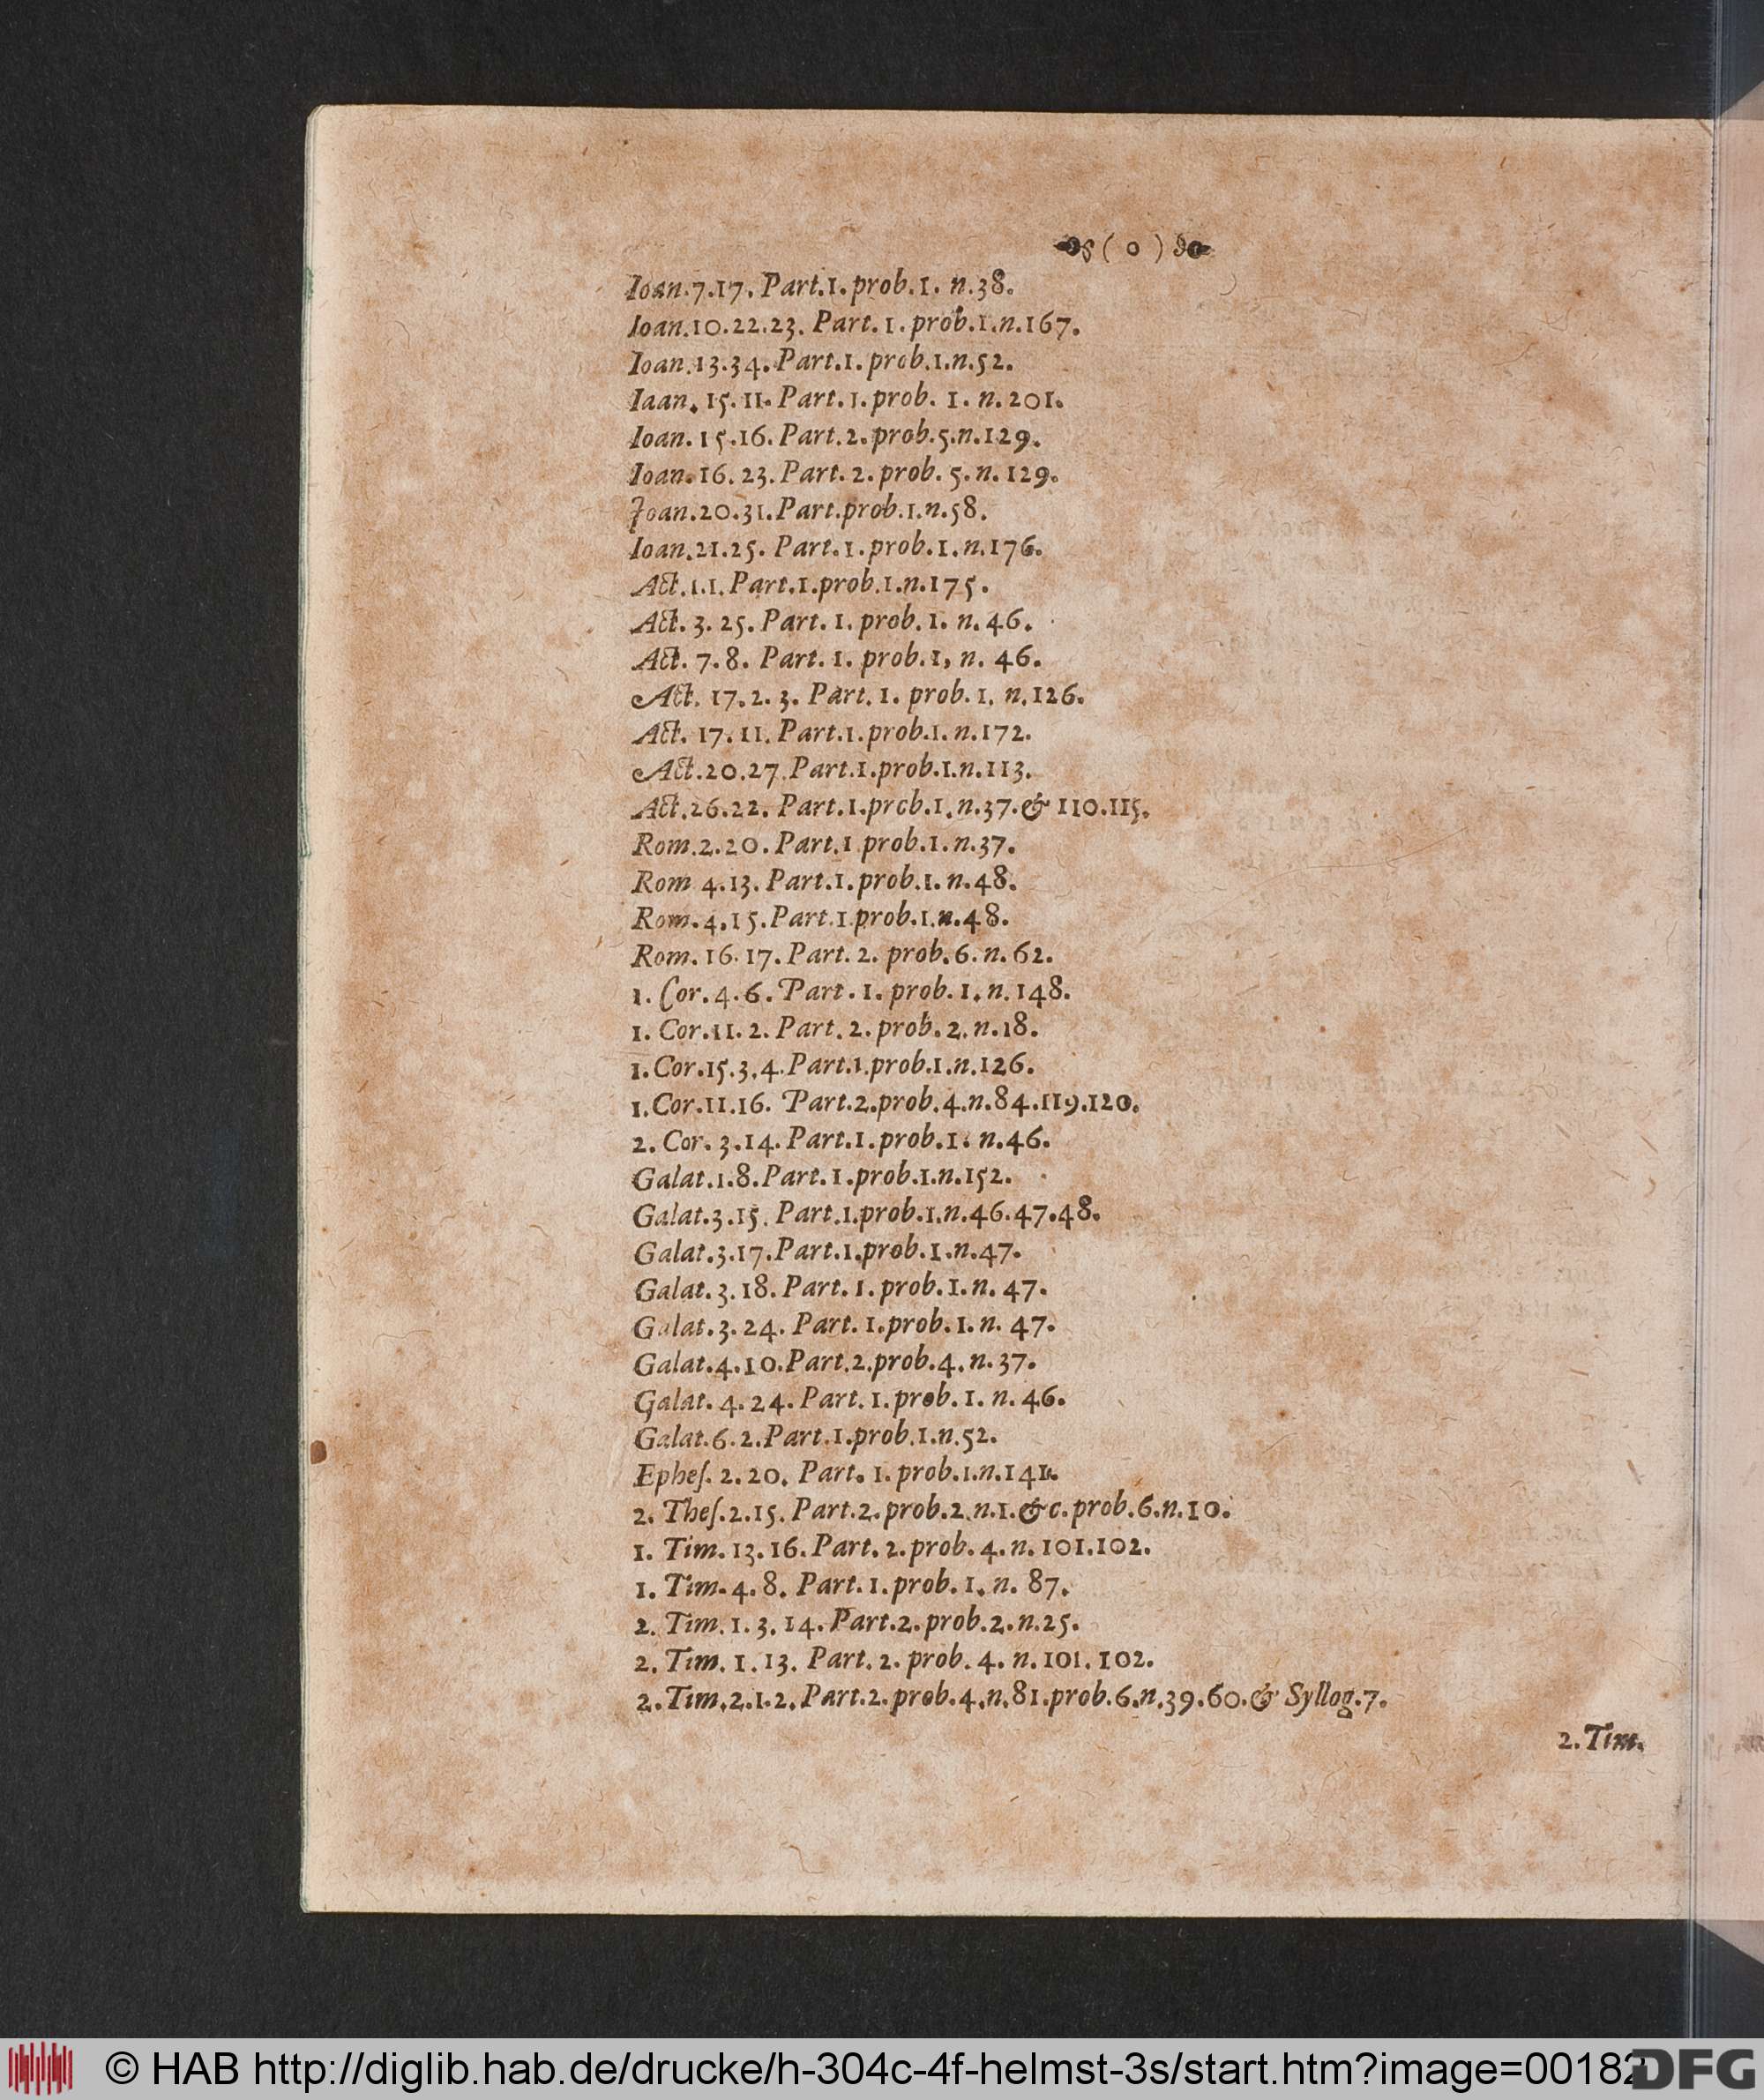 ( o )
Ioan.7.17. Part.1. prob.1. n.38.
Ioan.10.22.23. Part. 1. prob.1.n.167.
Ioan.13.34. Part.1. prob.1.n.52.
Iaan. 15. 11. Part. 1. prob. 1. n. 201.
Ioan. 15.16. Part. 2. prob.5.n.129.
Ioan. 16. 23. Part. 2. prob. 5. n. 129.
Joan.20.31.Part.prob.1.n.58.
Ioan.21.25. Part. 1. prob.1.n.176.
Act.1.1. Part.1.prob.1.n.175.
Act. 3. 25. Part. 1. prob. 1. n. 46.
Act. 7. 8. Part. 1. prob. 1, n. 46.
Act. 17. 2. 3. Part. 1. prob. 1. n. 126.
Act. 17. 11. Part.1. prob.1. n.172.
Act.20.27. Part.1.prob.1.n.113.
Act.26.22. Part.1.prob.1.n.37.& 110.115.
Rom.2.20. Part.1 prob.1.n.37.
Rom 4.13. Part.1. prob.1. n.48.
Rom.4.15.Part.1.prob.1.n.48.
Rom. 16. 17. Part. 2. prob. 6. n. 62.
1. Cor. 4. 6. Part. 1. prob. 1. n. 148.
1. Cor.11. 2. Part. 2. prob. 2. n.18.
1.Cor.15.3.4.Part.1.prob.1.n.126.
1.Cor.11.16. Part.2.prob.4.n.84.119.120.
2. Cor. 3.14. Part.1. prob.1. n.46.
Galat.1.8.Part.1.prob.1.n.152.
Galat.3.15. Part.1.prob.1.n.46.47.48.
Galat.3.17.Part.1.prob.1.n.47.
Galat. 3. 18. Part. 1. prob. 1. n. 47.
Galat.3. 24. Part. 1.prob. 1. n. 47.
Galat.4.10.Part.2.prob.4.n.37.
Galat. 4. 24. Part. 1. prob. 1. n. 46.
Galat.6.2.Part.1.prob.1.n.52.
Epheſ. 2. 20. Part. 1. prob.1.n.141.
2. Theſ.2.15. Part.2.prob.2.n.1.&c.prob.6.n.10.
1. Tim. 13. 16. Part. 2. prob. 4. n. 101.102.
1. Tim. 4. 8. Part. 1. prob. 1. n. 87.
2. Tim. 1. 3. 14. Part.2. prob.2. n.25.
2. Tim. 1. 13. Part. 2. prob. 4. n. 101. 102.
2. Tim.2.1.2.Part.2.prob.4.n.81.prob.6.n.39.60.& Syllog.7.
2. Tim.
© HAB http://diglib.hab.de/drucke/h-304c-4f-helmst-3s/start.htm?image=00182
DFG